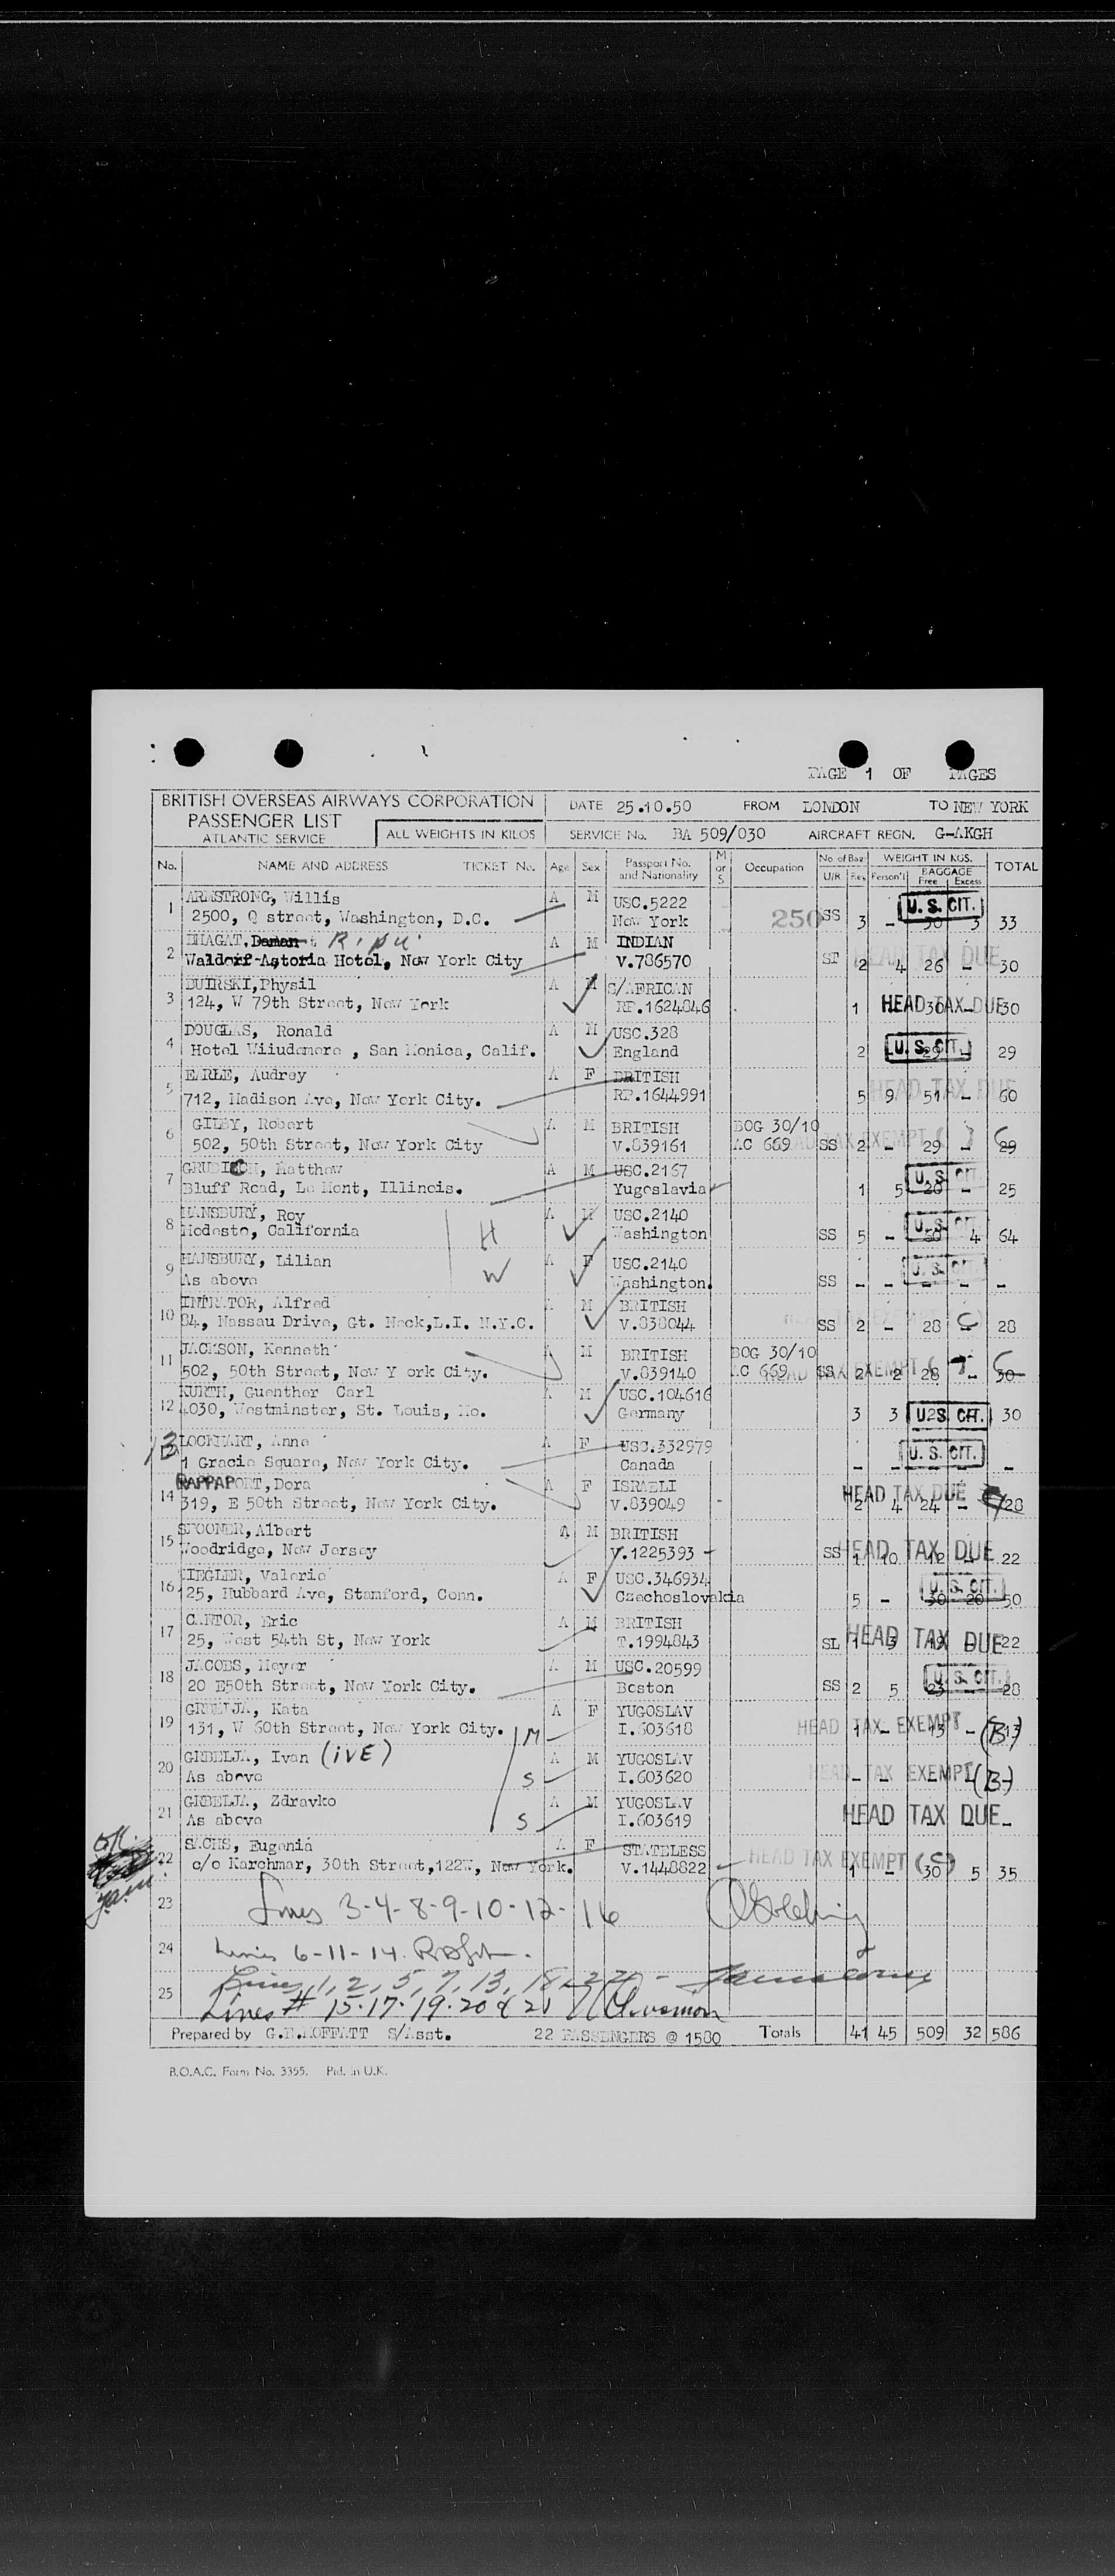 PAGE 1 OF PAGES
BRITISH OVERSEAS AIRWAYS CORPORATION
PASSENGER LIST
ATLANTIC SERVICE
ALL WEIGHTS IN KILOS
DATE 25.10.50 FROM LONDON TO NEW YORK
SERVICE No. BA 509/030 AIRCRAFT REGN. G-AKGH
No. NAME AND ADDRESS TICKET No. Age Sex Passport No. and Nationality M or S Occupation No of Bags U/R Pcs WEIGHT IN KGS. Person'l BAGGAGE Free Excess TOTAL
1 ARMSTRONG, Willis A M USC.5222 250 SS 3 - 30 3 33 U.S. CIT.
2500, Q street, Washington, D.C. New York
2 BHAGAT, Daman Ripu A M INDIAN
Waldorf-Astoria Hotel, New York City V.786570 2 4 26 - 30 HEAD TAX DUE
3 DUIRSKI, Physil A M S/AFRICAN
124, W 79th Street, New York RP.1624846 1 30 - 30 HEAD TAX DUE
4 DOUGLAS, Ronald A M USC.328
Hotel Wiiudamere , San Monica, Calif. England 2 29 - 29 U.S. CIT.
5 EARLE, Audrey A F BRITISH
712, Madison Ave, New York City. RP.1644991 5 9 51 - 60 HEAD TAX DUE
6 GILBY, Robert A M BRITISH BOG 30/10
502, 50th Street, New York City V.839161 AC 669 SS 2 - 29 - 29 HEAD TAX EXEMPT
7 Matthew A M USC.2167
Bluff Road, Le Mont, Illinois. Yugoslavia 1 5 20 - 25 U.S. CIT.
8 HANSBURY, Roy H A M USC.2140
Modesto, California Washington SS 5 - 60 4 64 U.S. CIT.
9 HANSBURY, Lilian W A F USC.2140
As above Washington. SS - - - - - U.S. CIT.
10 INTRATOR, Alfred A M BRITISH
84, Nassau Drive, Gt. Neck,L.I. N.Y.C. V.838044 SS 2 - 28 - 28 HEAD TAX EXEMPT
11 JACKSON, Kenneth A M BRITISH BOG 30/10
502, 50th Street, New Y ork City. V.839140 AC 669 SS 2 2 28 - 30 HEAD TAX EXEMPT
12 KURTH, Guenther Carl A M USC.104616
4030, Westminster, St. Louis, Mo. Germany 3 3 27 - 30 U.S. CIT.
13 LOCKHART, Anne A F USC.332979
1 Gracie Square, New York City. Canada - - - - - U.S. CIT.
14 RAPPAPORT, Dora A F ISRAELI
319, E 50th Street, New York City. V.839049 2 4 24 - 28 HEAD TAX DUE
15 SPOONER, Albert A M BRITISH
Woodridge, New Jersey V.1225393 SS 1 10 12 - 22 HEAD TAX DUE
16 ZIEGLER, Valerie A F USC.346934
25, Hubbard Ave, Stamford, Conn. Czechoslovakia 5 - 30 20 50 U.S. CIT.
17 CANTOR, Eric A M BRITISH
25, West 54th St, New York T.1994843 SL 1 3 19 - 22 HEAD TAX DUE
18 JACOBS, Meyer A M USC.20599
20 E50th Street, New York City. Boston SS 2 5 23 - 28 U.S. CIT.
19 GRBELJA, Kata A F YUGOSLAV
131, W 60th Street, New York City. M I.603618 1 - 13 - 13 HEAD TAX EXEMPT (B)
20 GRBELJA, Ivan (IVE) A M YUGOSLAV
As above S I.603620 - - HEAD TAX EXEMPT (B)
21 GRBELJA, Zdravko A M YUGOSLAV
As above S I.603619 HEAD TAX DUE -
OK
22 SACHS, Eugenia A F STATELESS
c/o Karchmar, 30th Street,122W, New York. V.1448822 1 - 30 5 35 HEAD TAX EXEMPT (S)
23 Lines 3-4-8-9-10-12-16
24 Lines 6-11-14
25 Lines 1, 2, 5, 7, 13, 18, 22 -
Lines # 15-17-19-20 & 21
Prepared by G.E.MOFFATT S/Asst. 22 PASSENGERS @ 1580 Totals 41 45 509 32 586
B.O.A.C. Form No. 3355. Ptd. in U.K.